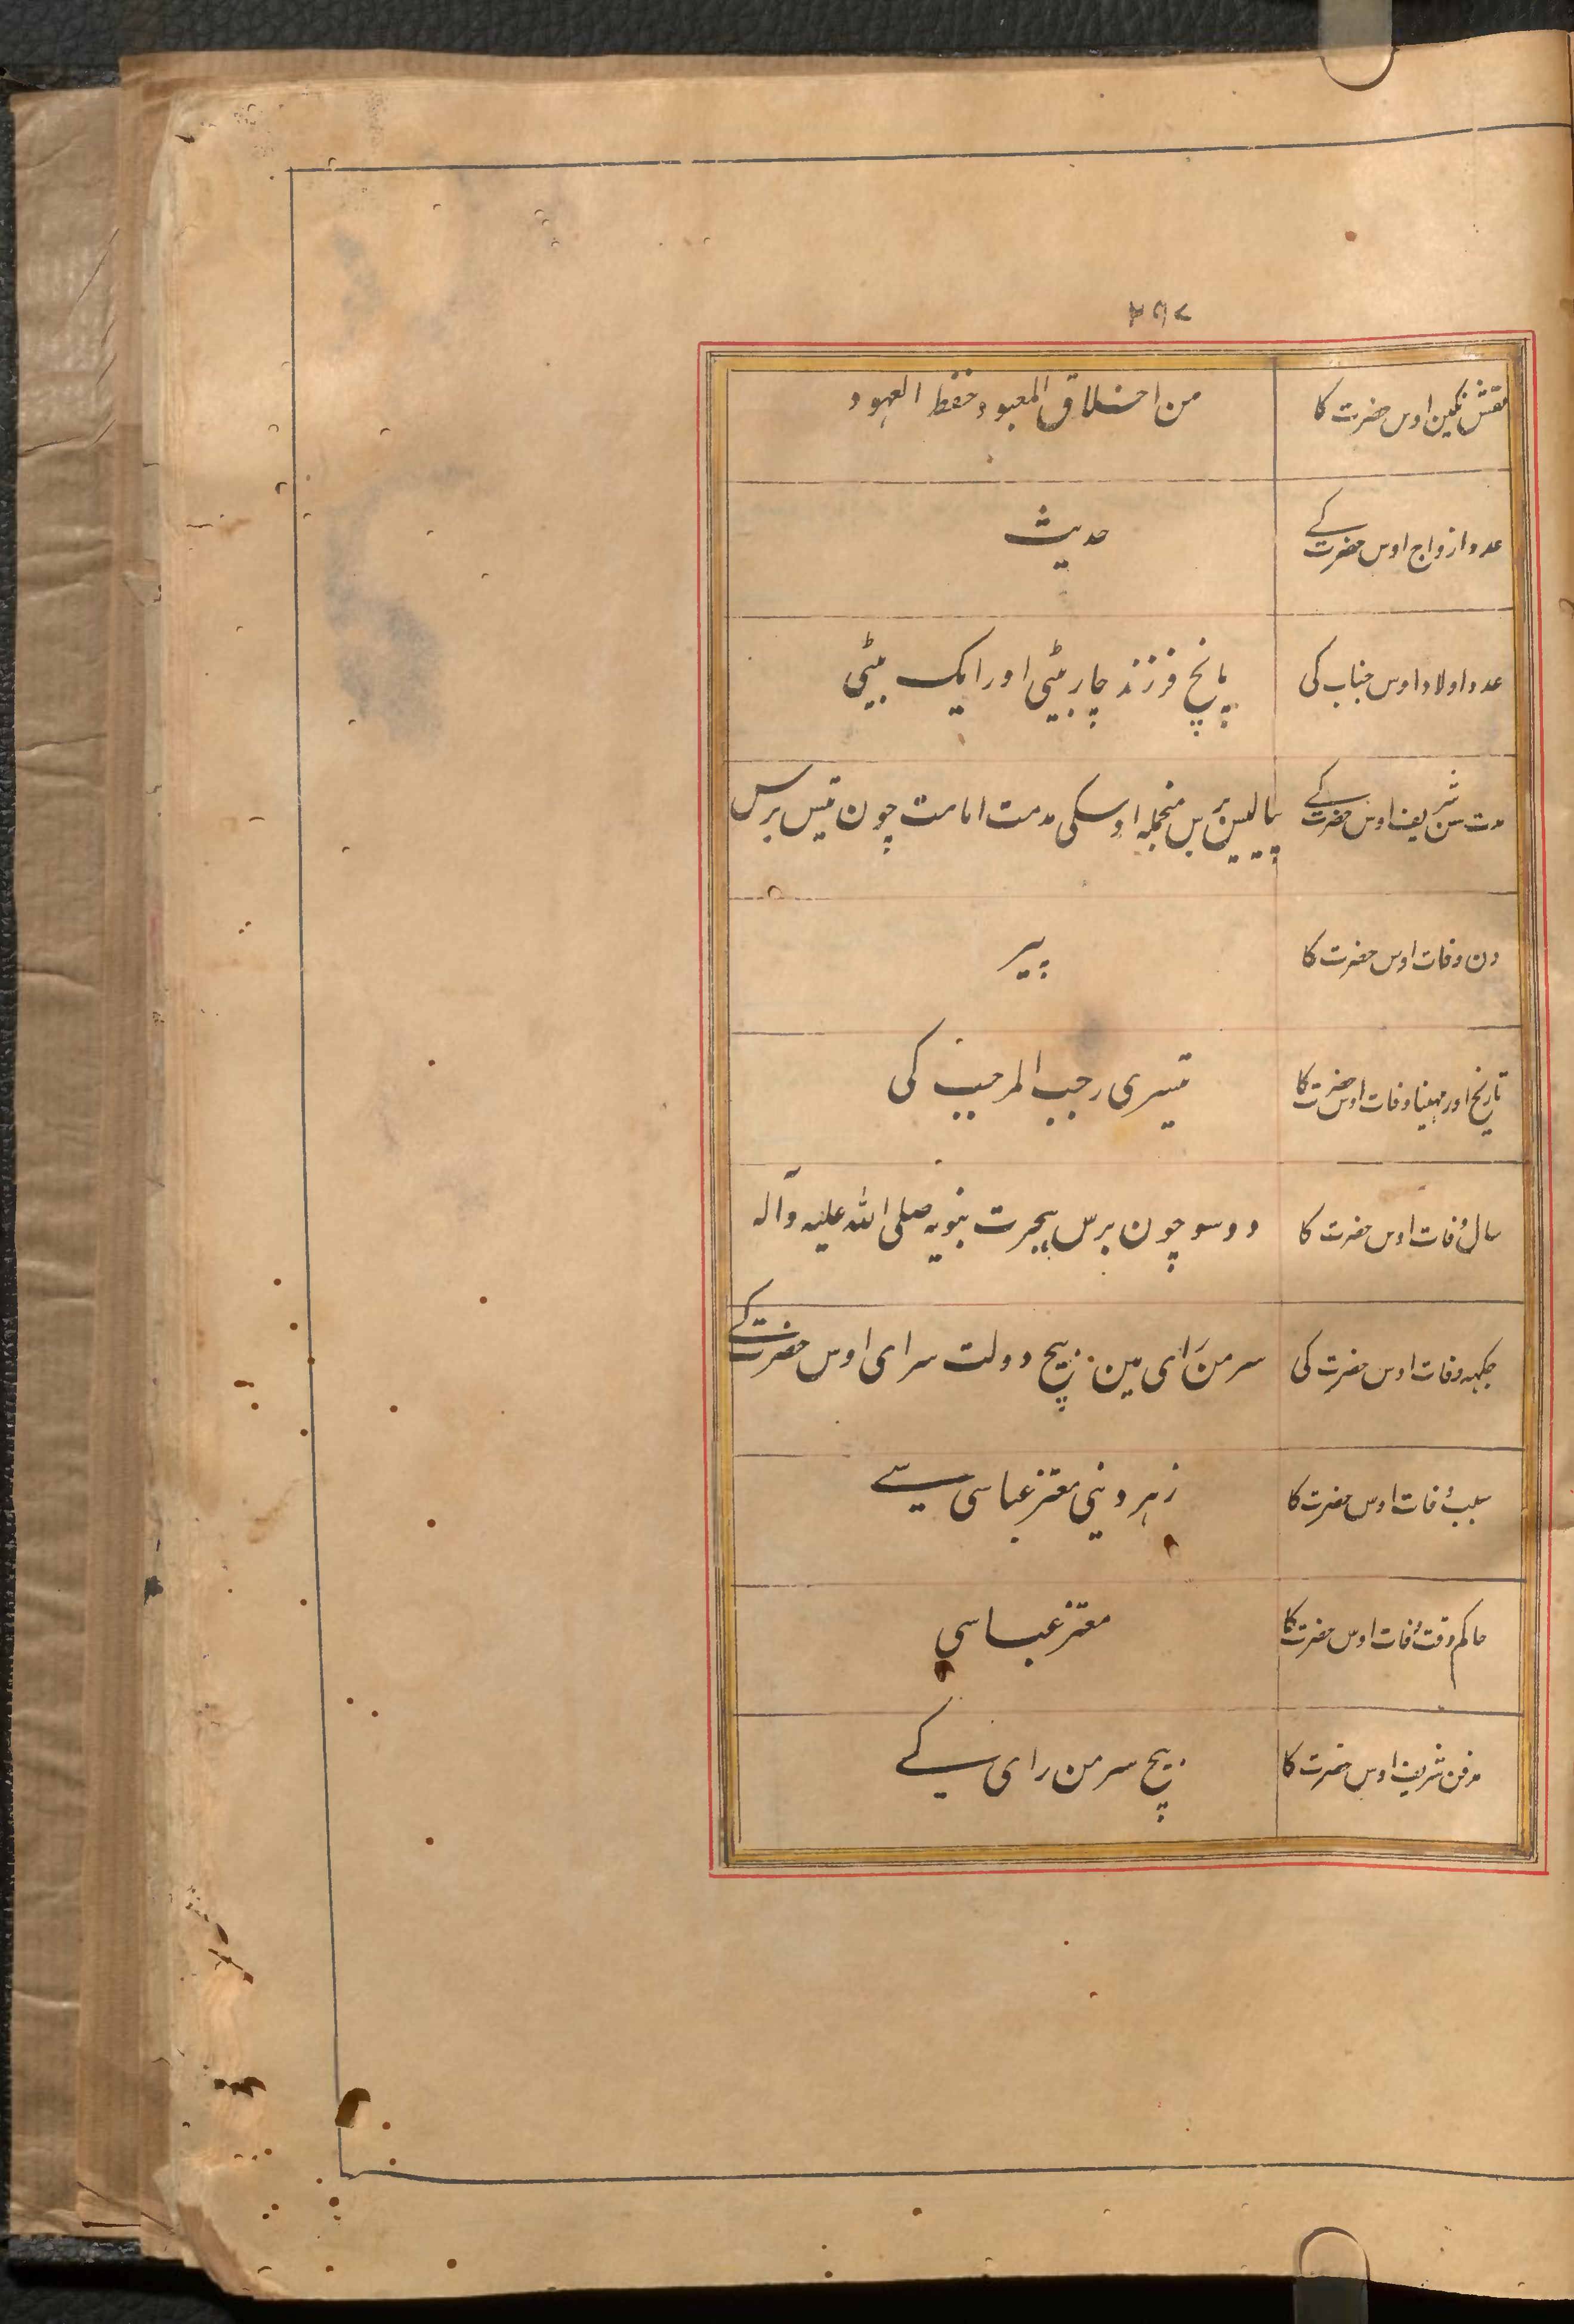 ۲۹۷
نقش نگین اوس حضرت کا من اخلاق المعبود حفظ العہود
عدد ازواج اوس حضرت کے حدیث
عدد اولاد اوس جناب کی پانچ فرزند چار بیٹی اور ایک بیٹی
مدت سن شریف اوس حضرت کے چالیس برس منجملہ اوسکی مدت امامت چون تیس برس
دن وفات اوس حضرت کا پیر
تاریخ اور مہینا وفات اوس حضرت کا تیسری رجب المرجب کی
سال وفات اوس حضرت کا دو سو چون برس ہجرت نبویہ صلی اللہ علیہ وآلہ
جگہہ وفات اوس حضرت کی سر من رَای مین بیچ دولت سرای اوس حضرت کے
سبب وفات اوس حضرت کا زہر دینی معتز عباسی سے
حاکم وقت وفات اوس حضرت کا معتز عباسی
مدفن شریف اوس حضرت کا بیچ سر من رای کے